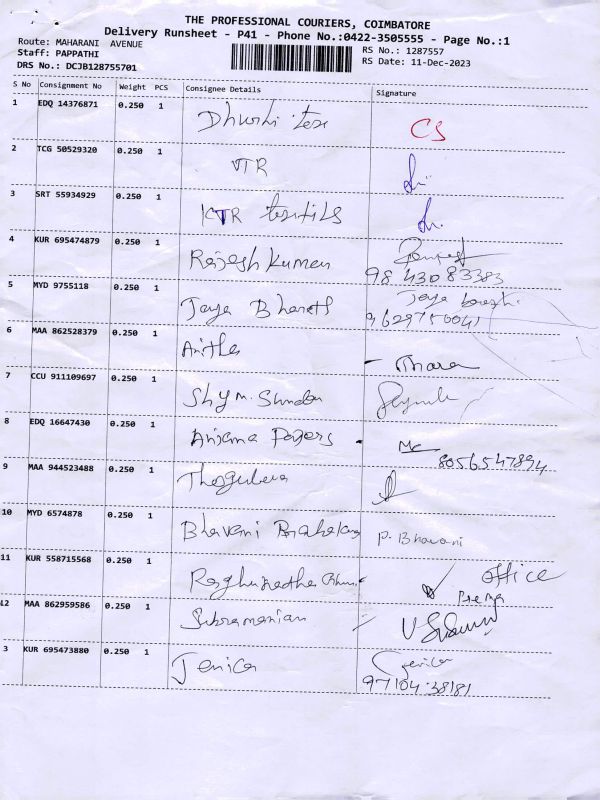 THE PROFESSIONAL COURIERS, COIMBATORE
Delivery Runsheet - P41 - Phone No.:0422-3505555 - Page No.:1
Route: MAHARANI AVENUE RS No.: 1287557
Staff: PAPPATHI RS Date: 11-Dec-2023
DRS No.: DCJB128755701
S No Consignment No Weight PCS Consignee Details Signature
1 EDQ 14376871 0.250 1 CS
2 TCG 50529320 0.250 1 VTR
3 SRT 55934929 0.250 1 KTR
4 KUR 695474879 0.250 1 Rajesh Kumar
98430 83383
5 MYD 9755118 0.250 1 Jaya Bharath
9629750041
6 MAA 862528379 0.250 1 Anitha
7 CCU 911109697 0.250 1 Shyam Sundar
8 EDQ 16647430 0.250 1 Papers
8056547894
9 MAA 944523488 0.250 1
10 MYD 6574878 0.250 1 P. Bhavani
11 KUR 558715568 0.250 1 office
Prema
12 MAA 862959586 0.250 1 Subramanian
3 KUR 695473880 0.250 1 Jenica Jenica
97104 38181